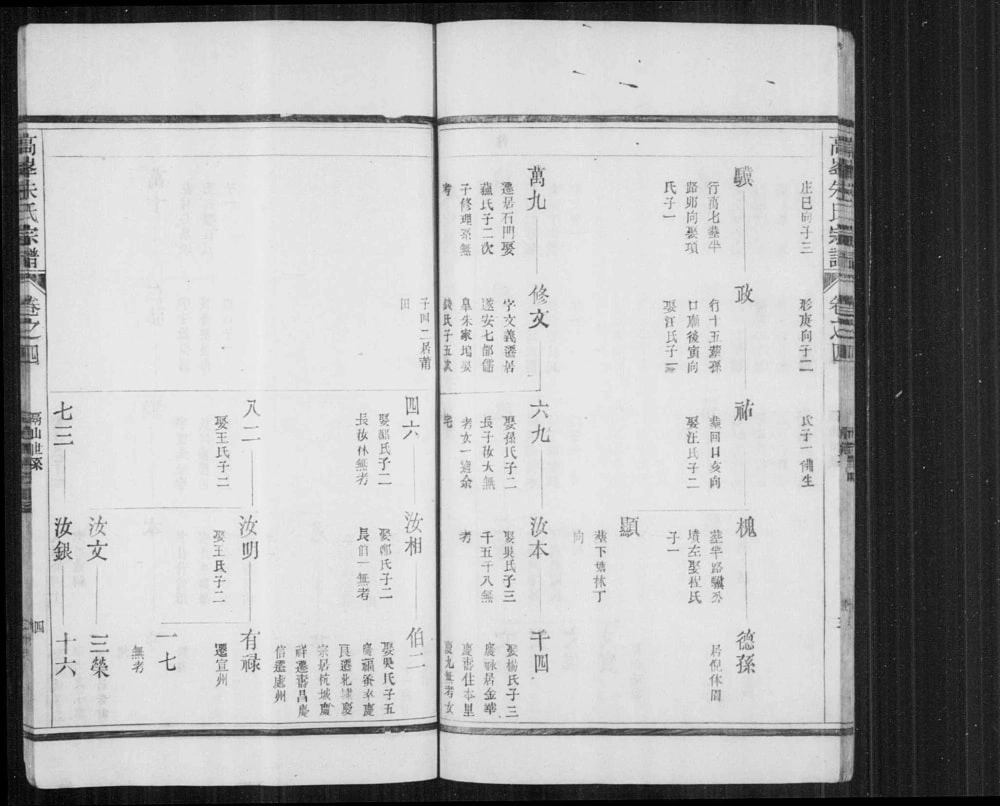 高峯朱氏宗譜
卷之四
庄巳向子三
形庚向子二
氏子一備生
驥
行萬七塟半
路卯向娶項
氏子一
政
行十五塟孫
口廟後寅向
娶汪氏子二
祐
塟回口亥向
娶汪氏子二
槐
塟半路驥公
墳左娶程氏
子一
德孫
居倪休周
顯
塟下塘林丁
向
萬九
遷居石門娶
氏子二次
子修理名無
考
修文
字文義遷居
遂安七都儒
皐朱家塢娶
錢氏子五
子四二居莆
田
六九
娶孫氏子二
長子汝大無
考女一適余
宅
汝本
娶吳氏子三
千五千八無
考
千四
娶楊氏子三
慶詠居金華
慶壽住本里
慶九無考女
四六
娶氏子二
長汝林無考
汝相
娶鄭氏子二
長伯一無考
伯二
娶吳氏子五
慶福養本慶
員遷北建慶
宗居杭城慶
祥遷壽昌慶
信遷處州
八二
娶王氏子二
汝明
娶王氏子二
有祿
遷宣州
一七
無考
汝文
三榮
七三
汝銀
十六
高峯朱氏宗譜
卷之四
四